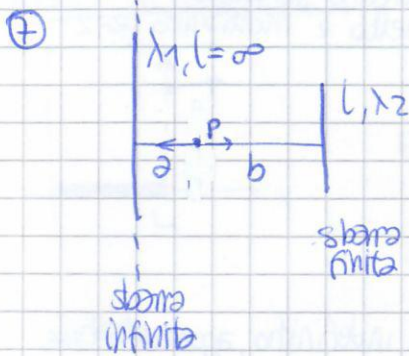 7
λ1, l=∞
l, λ2
P
a b
sbarra
finita
sbarra
infinita